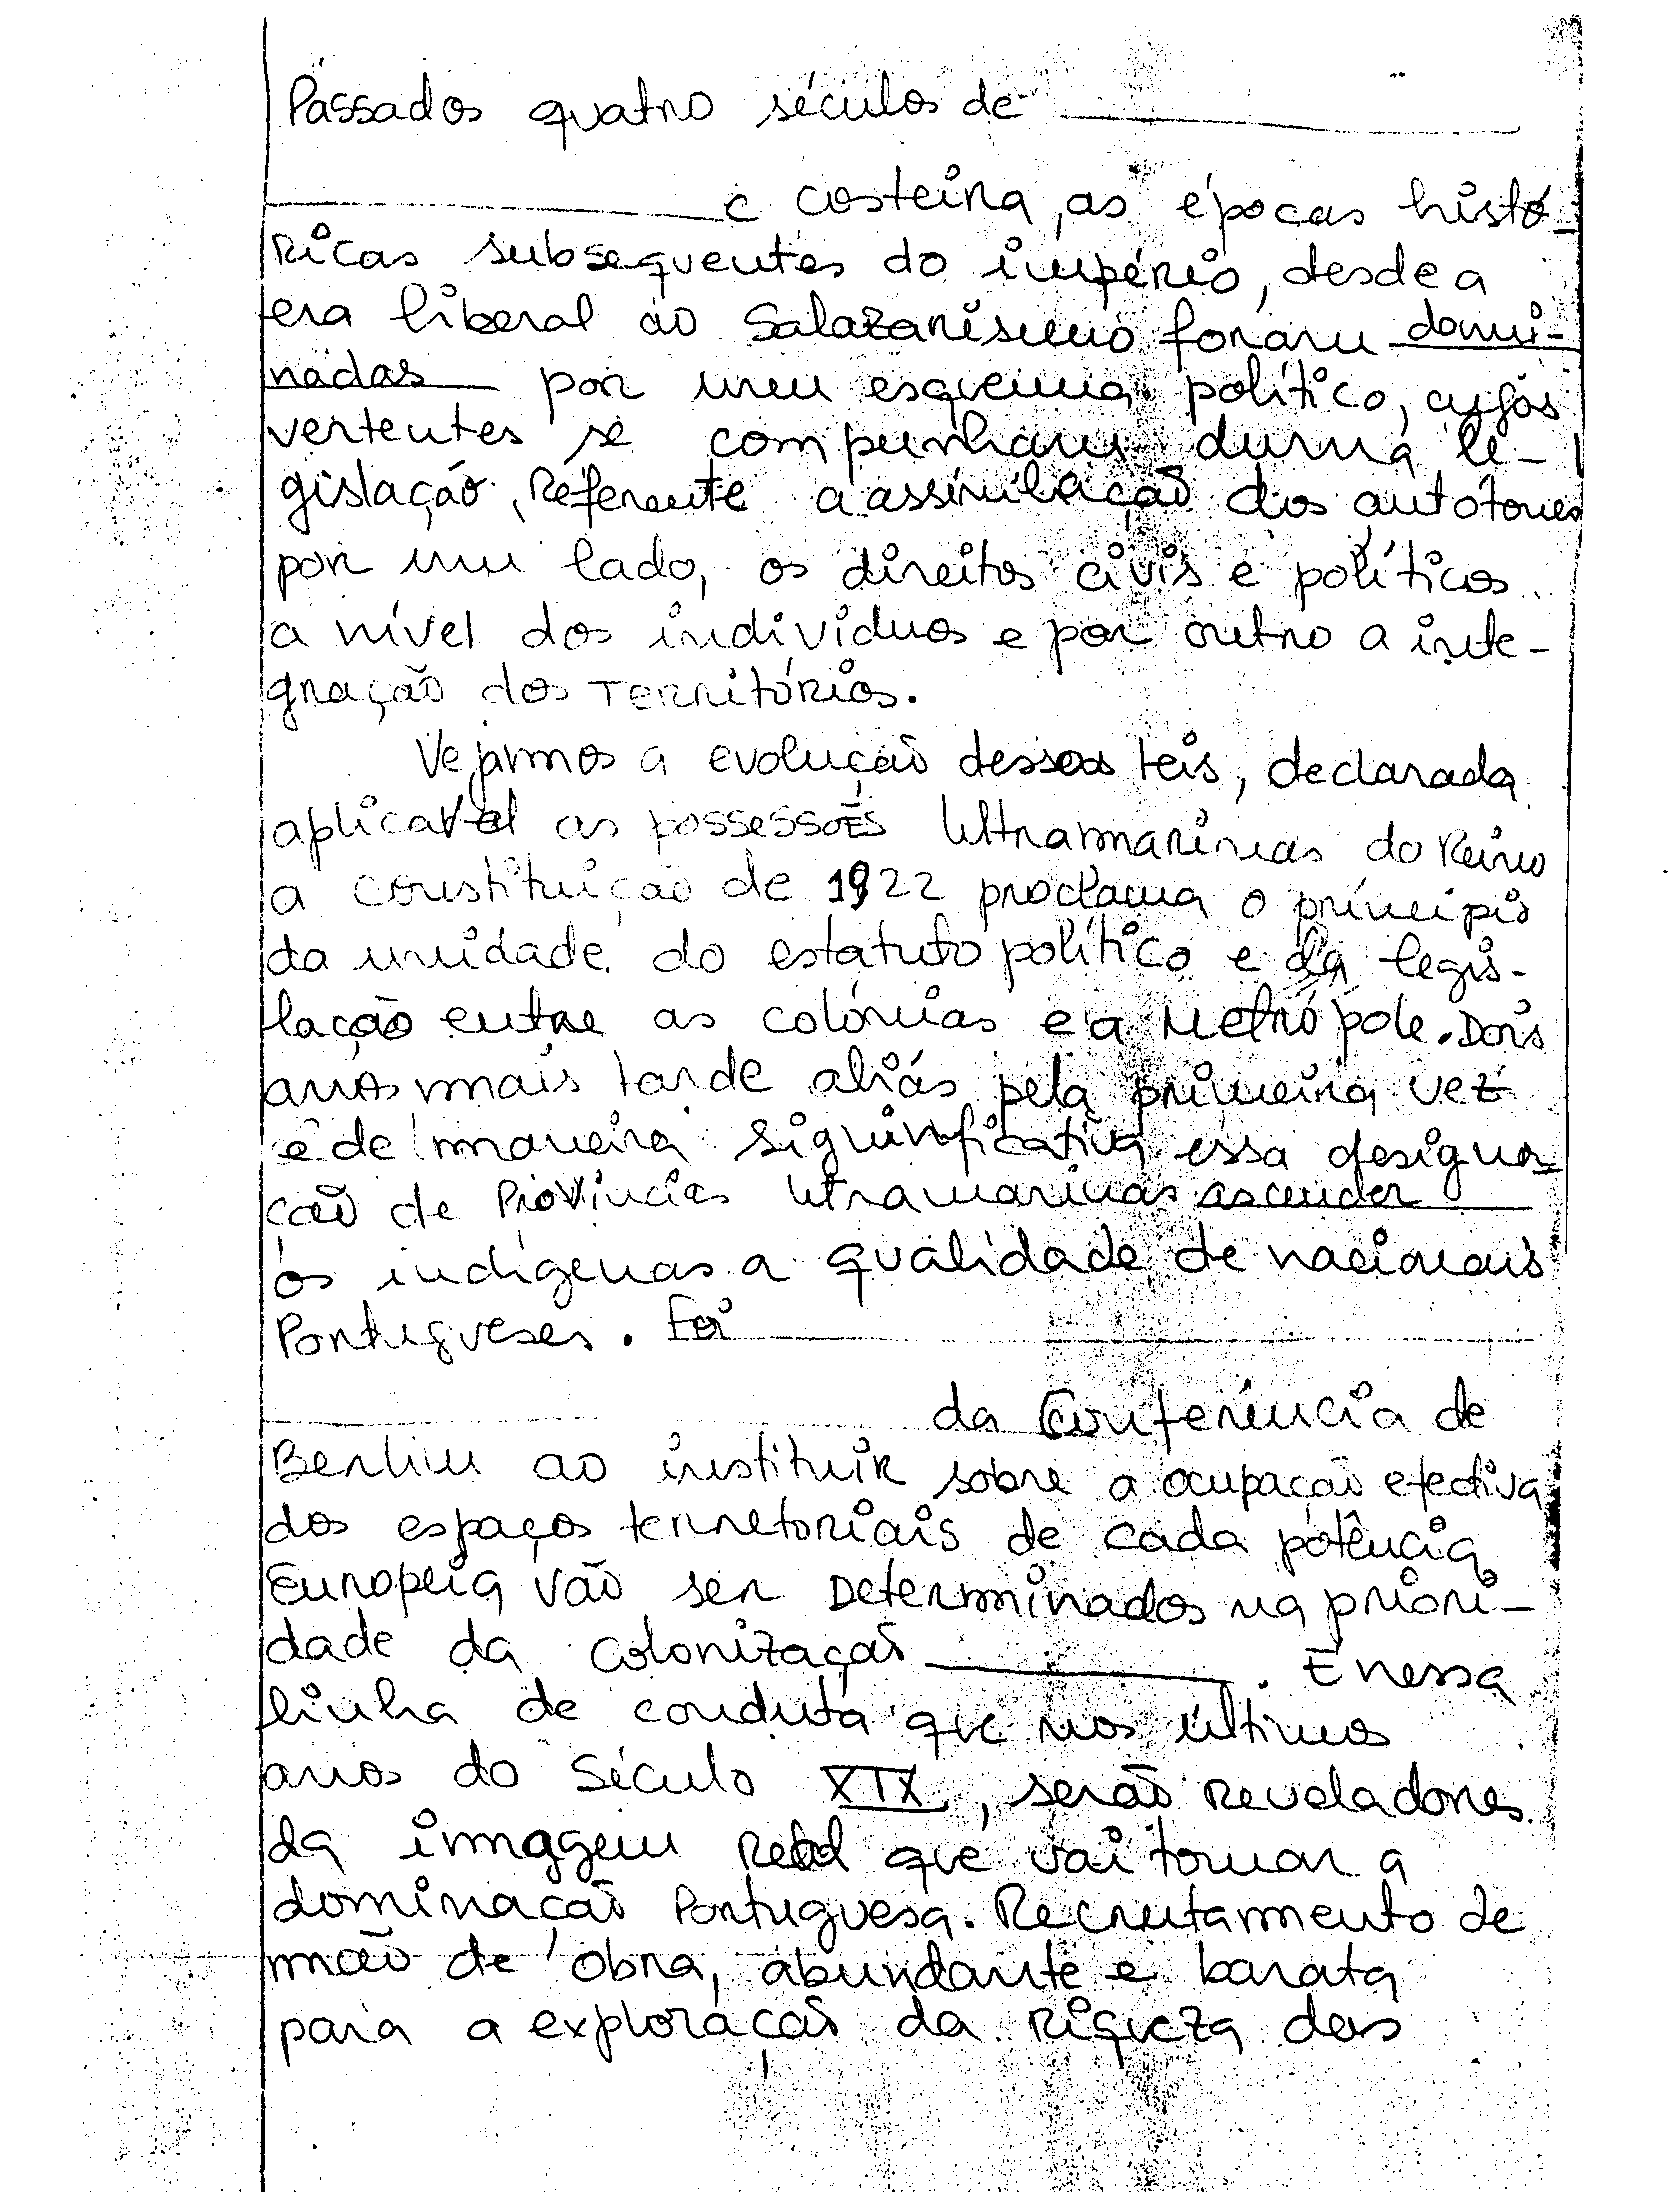 Passados quatro séculos de ____________
____________ e costeira, as épocas histó-
ricas subsequentes do império, desde a
era liberal ao Salazarismo foram domi-
nadas por um esquema político, cujas
vertentes se compunham duma le-
gislação, Referente a assimilação dos autótones
por um lado, os direitos civis e políticos
a nível dos indivíduos e por outro a inte-
gração dos Territórios.
Vejamos a evolução dessas teis, declarada
aplicavel as possessões Ultramarinas do Reino
a constituição de 1922 proclama o príncipio
da unidade do estatuto político e da legis-
lação entre as colónias e a Metrópole. Dois
anos mais tarde aliás pela primeira vez
e de maneira significativa essa designa-
ção de Províncias Utramarinas ascender
os indígenas a qualidade de nacionais
Portugueses. Foi ____________
____________ da Conferência de
Berlim ao instituir sobre a ocupação efectiva
dos espaços terretoriais de cada potência
Europeia vão ser Determinados na priori-
dade da colonização ____________. E nessa
linha de conduta que nos últimos
anos do Século XIX, serão Reveladores
da imagem Real que vai tomar a
dominação Portuguesa. Recrutamento de
mão de obra, abundante e barata
para a exploração da Riqueza das